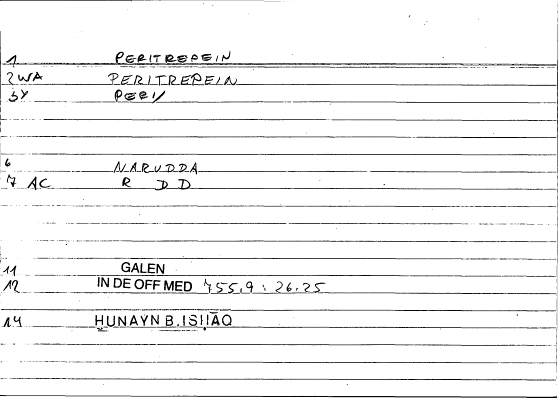 1 PERITREPEIN
2WA PERITREPEIN
3Y PERI/
6 NARUDDA
7 AC R D D
11 GALEN
12 IN DE OFF MED 755,9 : 26.25
14 HUNAYN B.ISḤĀQ